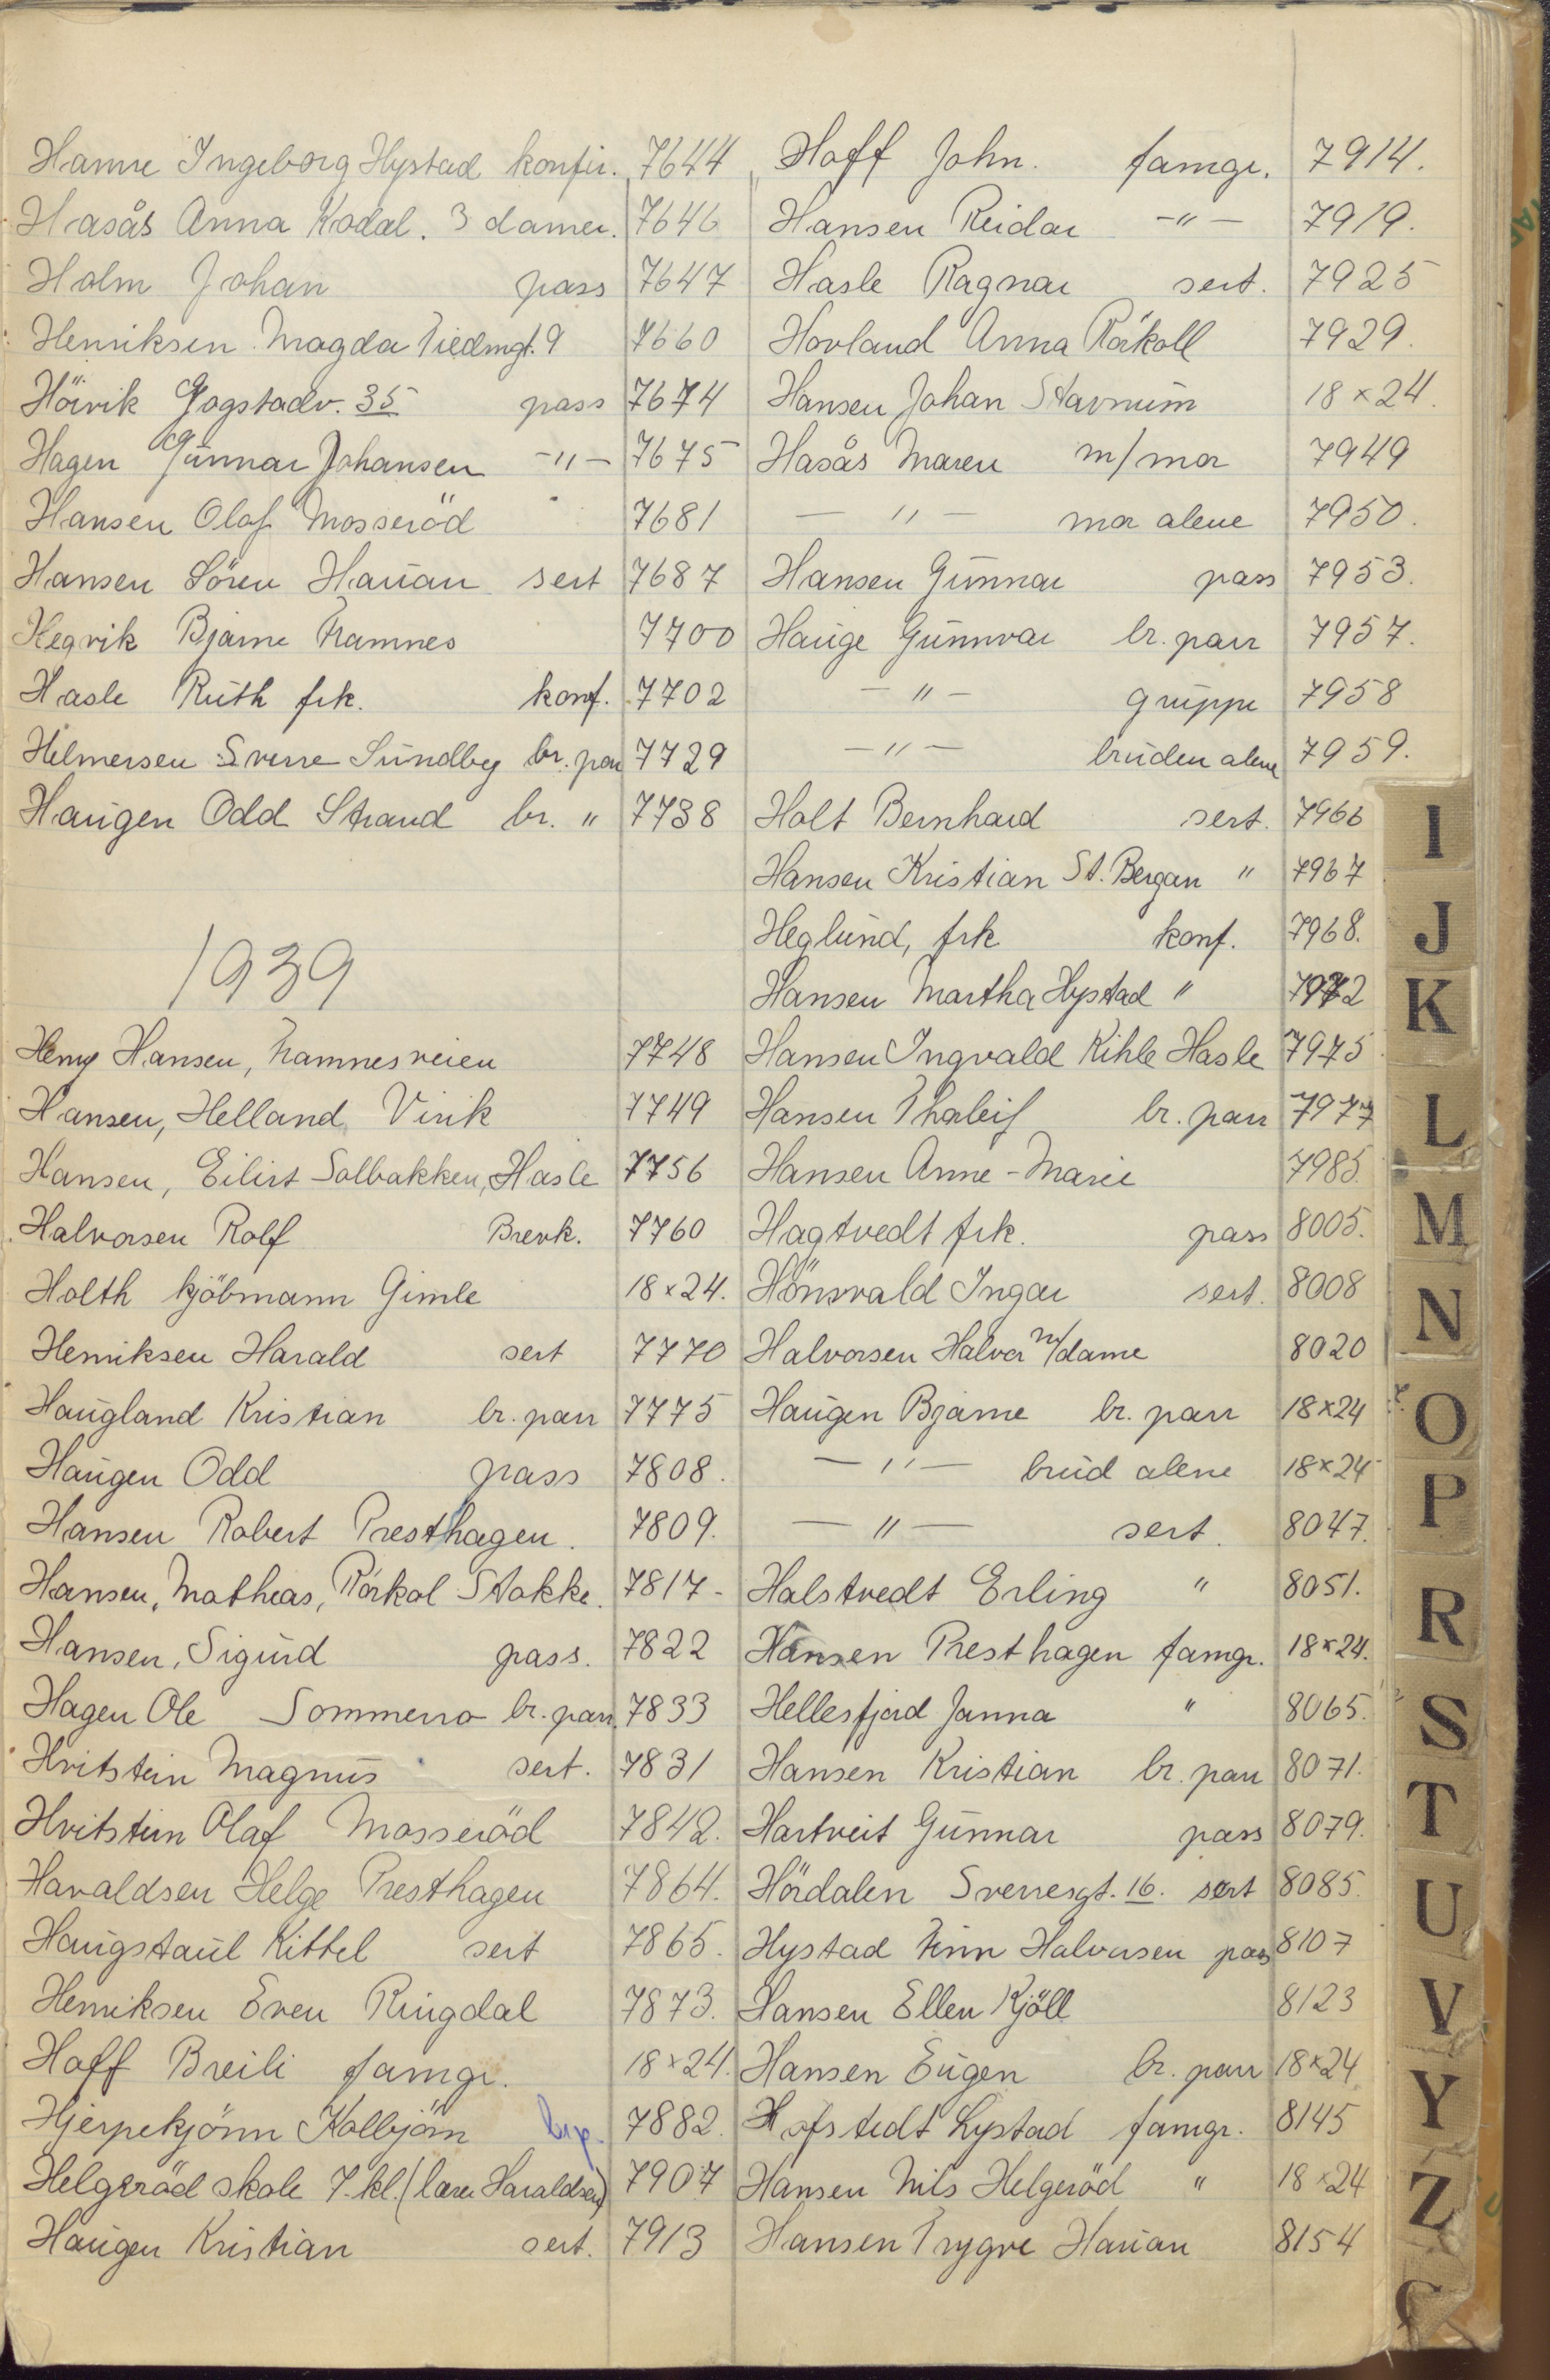 Hanne Ingeborg Hystad konfir. 7644
Hasås Anna Kodal. 3 damer. 7646
Holm Johan pass 7647
Henriksen Magda Tiedmgt. 9 7660
Höivik Gogstadv. 35 pass 7674
Hagen Gunnar Johansen -"- 7675
Hansen Olaf Mosseröd 7681
Hansen Sören Hauan sert 7687
Hegvik Bjarne Framnes 7700
Hasle Ruth frk. konf. 7702
Helmersen Sverre Sundby br. par 7729
Haugen Odd Strand br. " 7738
1939
Henry Hansen, Framnesveien 7748
Hansen, Helland Virik 7749
Hansen, Eilist Solbakken, Hasle 7756
Halvorsen Rolf Brevk. 7760
Holth kjöbmann Gimle 18×24.
Henriksen Harald sert 7770
Haugland Kristian br. parr 7775
Haugen Odd pass 7808.
Hansen Robert Presthagen. 7809.
Hansen, Mathias, Rörkol Stokke. 7817-
Hansen, Sigurd pass. 7822
Hagen Ole Sommerro br. parr 7833
Hvitstein Magnus sert. 7831
Hvitstein Olaf Mosseröd 7842.
Haraldsen Helge Presthagen 7864.
Haugstaul Kittel sert 7865.
Henriksen Even Ringdal 7873.
Hoff Breili famgr. 18×24.
Hjerpekjönn Kolbjörn br.p. 7882.
Helgeröd skole 7. kl. (lærer Haraldsen) 7907
Haugen Kristian sert. 7913
Hoff John. famgr. 7914.
Hansen Reidar -"- 7919.
Hasle Ragnar sert. 7925
Hovland Anna Rörkoll 7929.
Hansen Johan Stavnum 18×24.
Hasås Maren m/mor 7949
-"- mor alene 7950.
Hansen Gunnar pass 7953.
Hauge Gunnvar br. parr 7957.
-"- gruppe 7958
-"- bruden alene 7959.
Holt Bernhard sert. 7966
Hansen Kristian St. Bergan " 7967
Heglund, frk konf. 7968.
Hansen Martha Hystad " 7972
Hansen Ingvald Kihle Hasle 7975
Hansen Thorleif br. parr 7977
Hansen Anne-Marie 7985.
Hagtvedt frk. pass 8005.
Hönsvald Ingar sert. 8008
Halvorsen Halvor m/dame 8020
Haugen Bjarne br. parr 18×24
-"- brud alene 18×24
-"- sert. 8047.
Halstvedt Erling " 8051.
Hansen Presthagen famgr. 18×24.
Hellesfjord Janna " 8065.
Hansen Kristian br. parr 8071.
Hartveit Gunnar pass 8079.
Hördalen Sverresgt. 16. sert 8085.
Hystad Finn Halvorsen pass 8107
Hansen Ellen Kjöll 8123
Hansen Eugen br. parr 18×24
Hofstedt Lystad famgr. 8145
Hansen Nils Helgeröd " 18×24
Hansen Trygve Hauan 8154
I
J
K
L
M
N
O
P
R
S
T
U
V
Y
Z